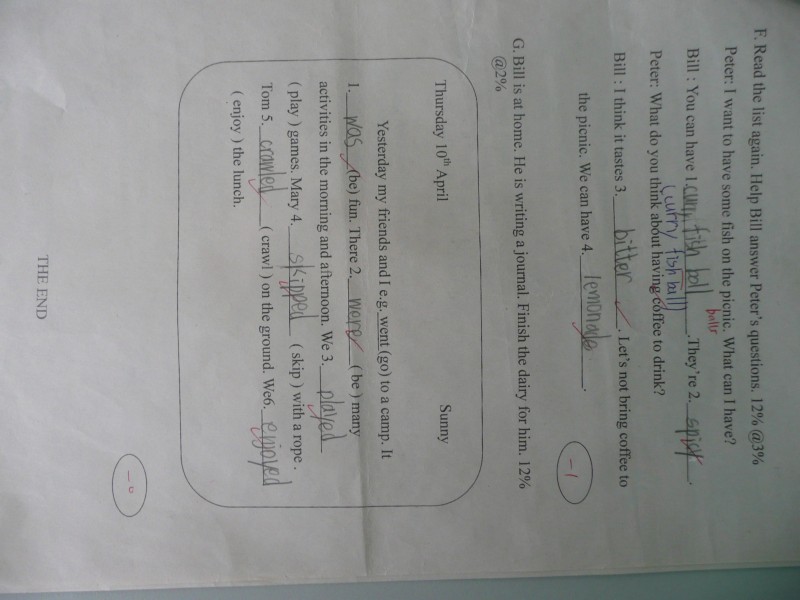 F. Read the list again. Help Bill answer Peter's questions. 12% @3%
Peter: I want to have some fish on the picnic. What can I have?
balls
Bill : You can have 1.curry fish boll. They're 2. spicy.
(curry fish ball)
Peter: What do you think about having coffee to drink?
Bill : I think it tastes 3. bitter. Let's not bring coffee to
the picnic. We can have 4. lemonade.
-1
G. Bill is at home. He is writing a journal. Finish the dairy for him. 12%
@2%
Thursday 10th April Sunny
Yesterday my friends and I e.g. went (go) to a camp. It
1. was (be) fun. There 2. were ( be ) many
activities in the morning and afternoon. We 3. played
( play ) games. Mary 4. skipped ( skip ) with a rope .
Tom 5. crawled ( crawl ) on the ground. We6. enjoyed
( enjoy ) the lunch.
-0
THE END